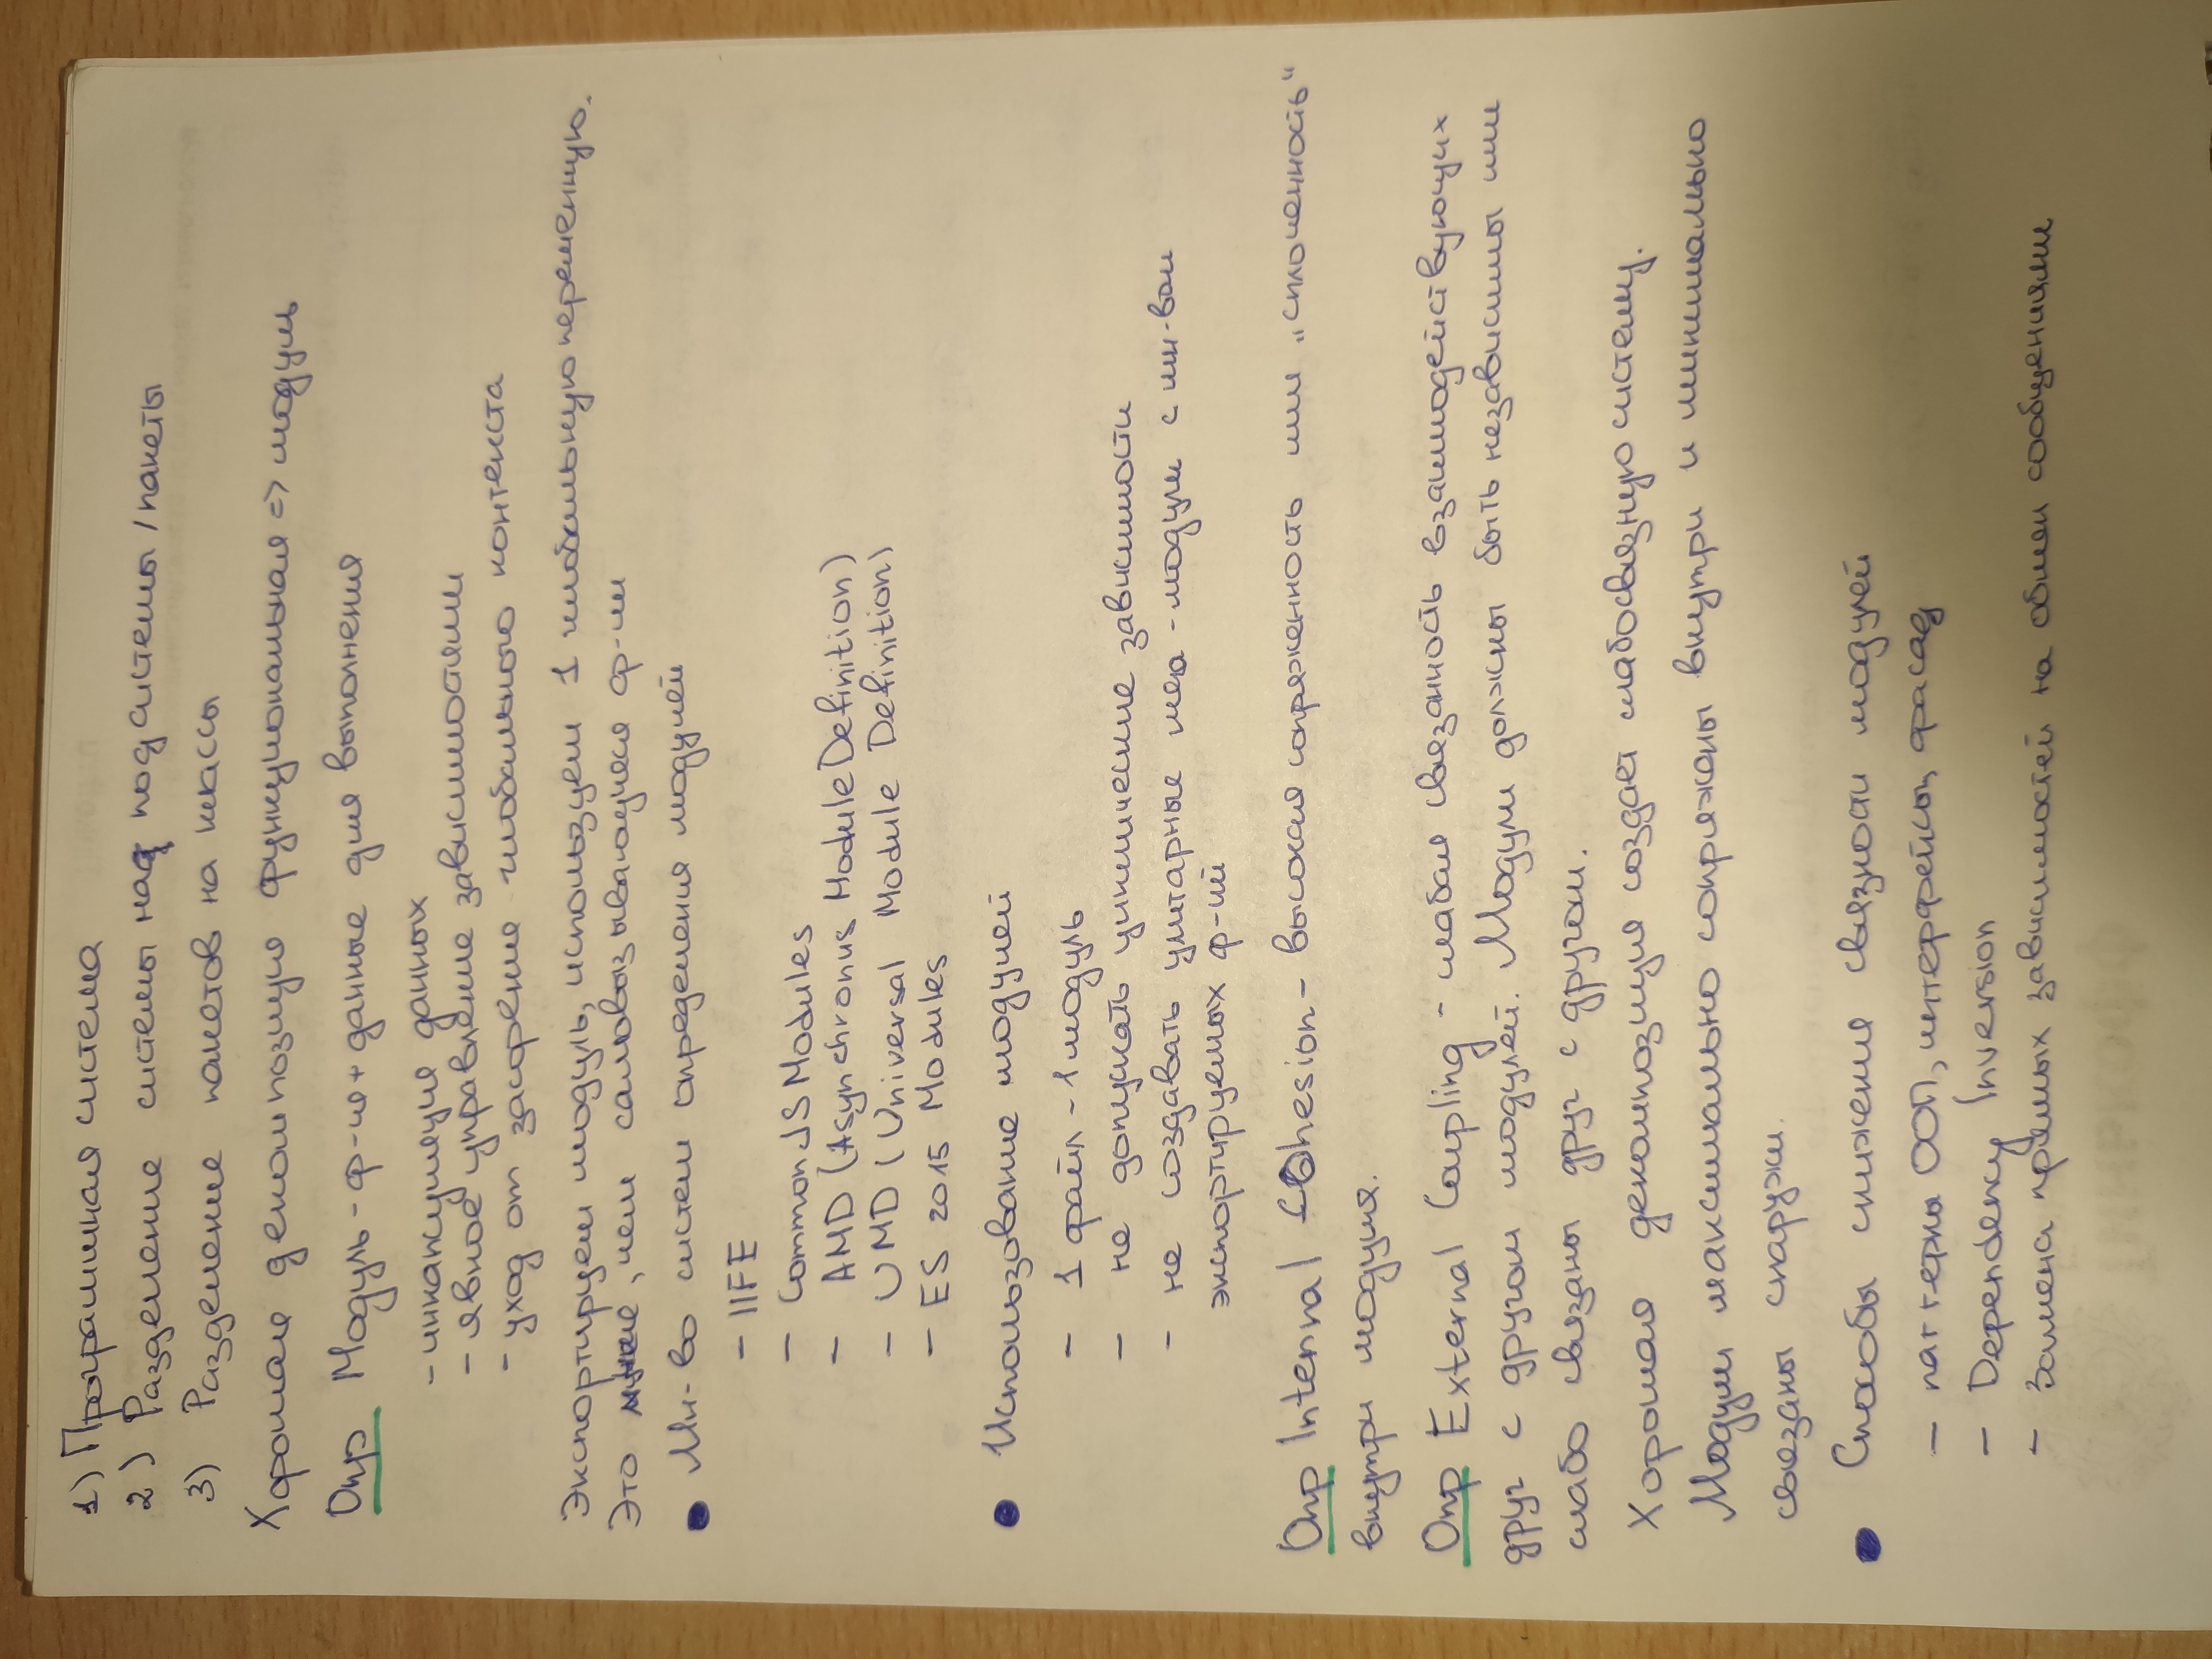 1) Программная система
2) Разделение системы на подсистемы / пакеты
3) Разделение пакетов на классы
Хорошая декомпозиция функциональная => модуль
Опр Модуль - ф-ия + данные для выполнения
- инкапсуляция данных
- явное управление зависимостями
- уход от засорения глобального контекста
Экспортируем модуль, используем 1 глобальную переменную.
Это лучше, чем самовызывающиеся ф-ии
• Мн-во систем определения модулей
- IIFE
- CommonJS Modules
- AMD (Asynchronus Module Definition)
- UMD (Universal Module Definition)
- ES 2015 Modules
• Использование модулей
- 1 файл - 1 модуль
- не допускать циклические зависимости
- не создавать унитарные мега-модули с мн-вом
экспортируемых ф-ий
Опр Internal Cohesion - высокая сопряженность или „сплоченность“
внутри модуля.
Опр External Coupling - слабая связанность взаимодействующих
друг с другом модулей. Модули должны быть независимы или
слабо связаны друг с другом.
Хорошая декомпозиция создает слабосвязную систему.
Модули максимально сопряжены внутри и минимально
связаны снаружи.
• Способы снижения связности модулей
- паттерны ООП, интерфейсы, фасад
- Dependency Inversion
- Замена прямых зависимостей на обмен сообщениями
Тинькофф